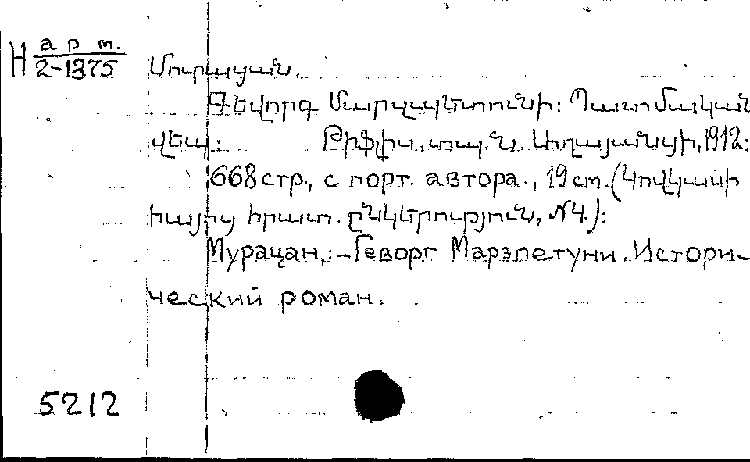 H арт.
2-1375
Մուրացան.
Գեվորգ Մարզպետունի: Պատմական
վեպ. Թիֆլիս, տպ. Ն. Աղայանցի, 1912:
668 стр., с порт. автора., 19 cm. (Կովկասի
հայոց հրատ. ընկերություն, №4.):
Мурацан. – Геворг Марзпетуни. Истори-
ческий роман.
5212